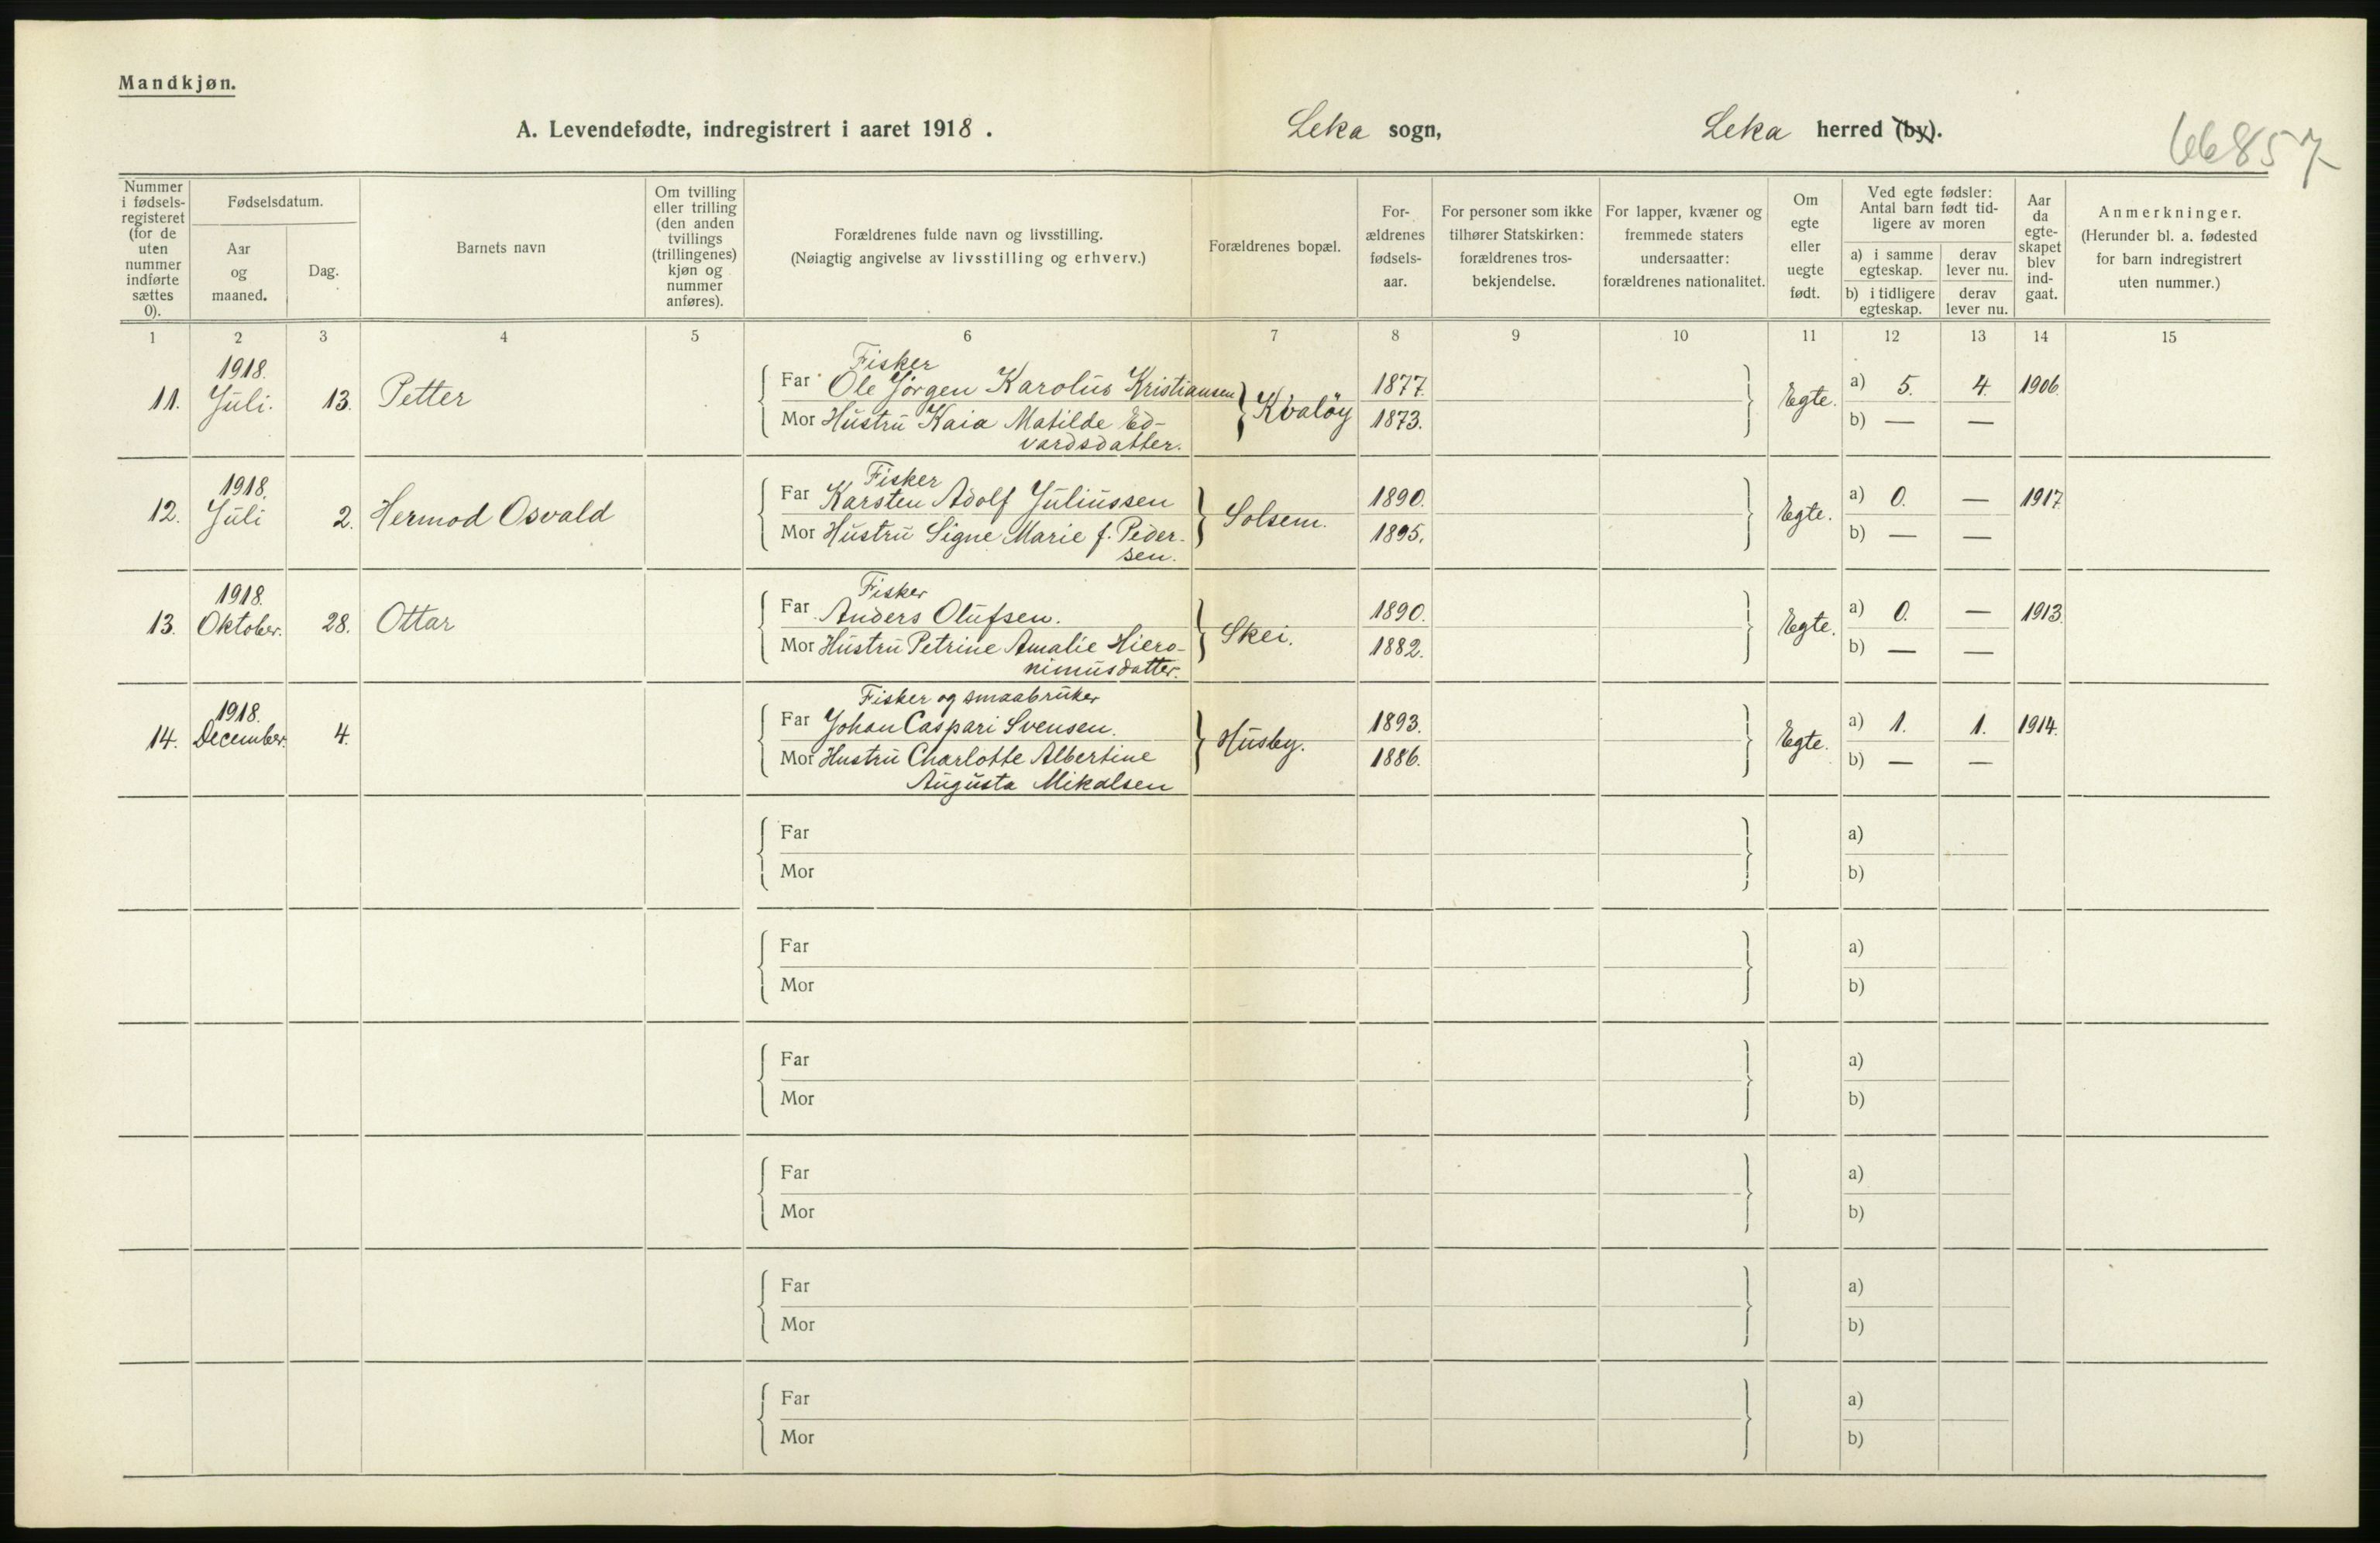 Mandkjøn.
A. Levendefødte, indregistrert i aaret 1918 .
Leka sogn,
Leka herred (by).
66857
Nummer
i fødsels-
registeret
(for de
uten
nummer
indførte
sættes
0).
Fødselsdatum.
Aar
og
maaned.
Dag.
Barnets navn
Om tvilling
eller trilling
(den anden
tvillings
(trillingenes)
kjøn og
nummer
anføres).
Forældrenes fulde navn og livsstilling.
(Nøiagtig angivelse av livsstilling og erhverv.)
Forældrenes bopæl.
For-
ældrenes
fødsels-
aar.
For personer som ikke
tilhører Statskirken:
forældrenes tros-
bekjendelse.
For lapper, kvæner og
fremmede staters
undersaatter:
forældrenes nationalitet.
Om
egte
eller
uegte
født.
Ved egte fødsler:
Antal barn født tid-
ligere av moren
a) i samme
egteskap.
derav
lever nu.
b) i tidligere
egteskap.
derav
lever nu.
Aar
da
egte-
skapet
blev
ind-
gaat.
Anmerkninger.
(Herunder bl. a. fødested
for barn indregistrert
uten nummer.)
1 2 3 4 5 6 7 8 9 10 11 12 13 14 15
11.
1918.
Juli.
13.
Petter
Fisker
Far Ole Jørgen Karolus Kristiansen
Mor Hustru Kaia Matilde Ed-
vardsdatter.
Kvaløy
1877.
1873.
Egte.
a) 5. 4. 1906.
b) — —
12.
1918.
Juli
2.
Hermod Osvald
Fisker
Far Karsten Adolf Juliussen
Mor Hustru Signe Marie f. Peder-
sen.
Solsem.
1890.
1895.
Egte.
a) 0. — 1917.
b) — —
13.
1918.
Oktober.
28.
Ottar
Fisker
Far Anders Olufsen.
Mor Hustru Petrine Amalie Hiero-
nimusdatter.
Skei.
1890.
1882.
Egte.
a) 0. — 1913.
b) — —
14.
1918.
December.
4.
Fisker og smaabruker
Far Johan Caspari Svensen.
Mor Hustru Charlotte Albertine
Augusta Mikalsen
Husby.
1893.
1886.
Egte.
a) 1. 1. 1914.
b) — —
Far a)
Mor b)
Far a)
Mor b)
Far a)
Mor b)
Far a)
Mor b)
Far a)
Mor b)
Far a)
Mor b)